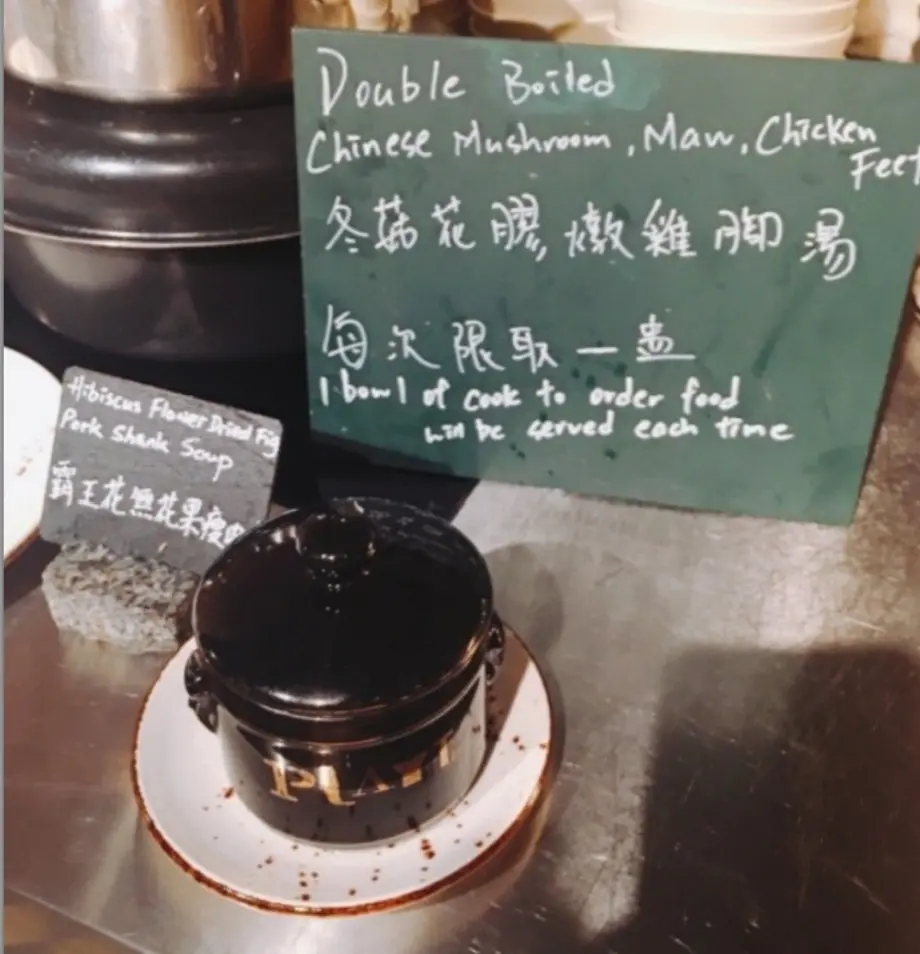 Double Boiled
Chinese Mushroom, Maw, Chicken
Feet
冬菇花膠,燉雞腳湯
每次限取一盅
1 bowl of cook to order food
will be served each time
Hibiscus Flower Dried Fig
Pork Shank Soup
霸王花無花果瘦肉